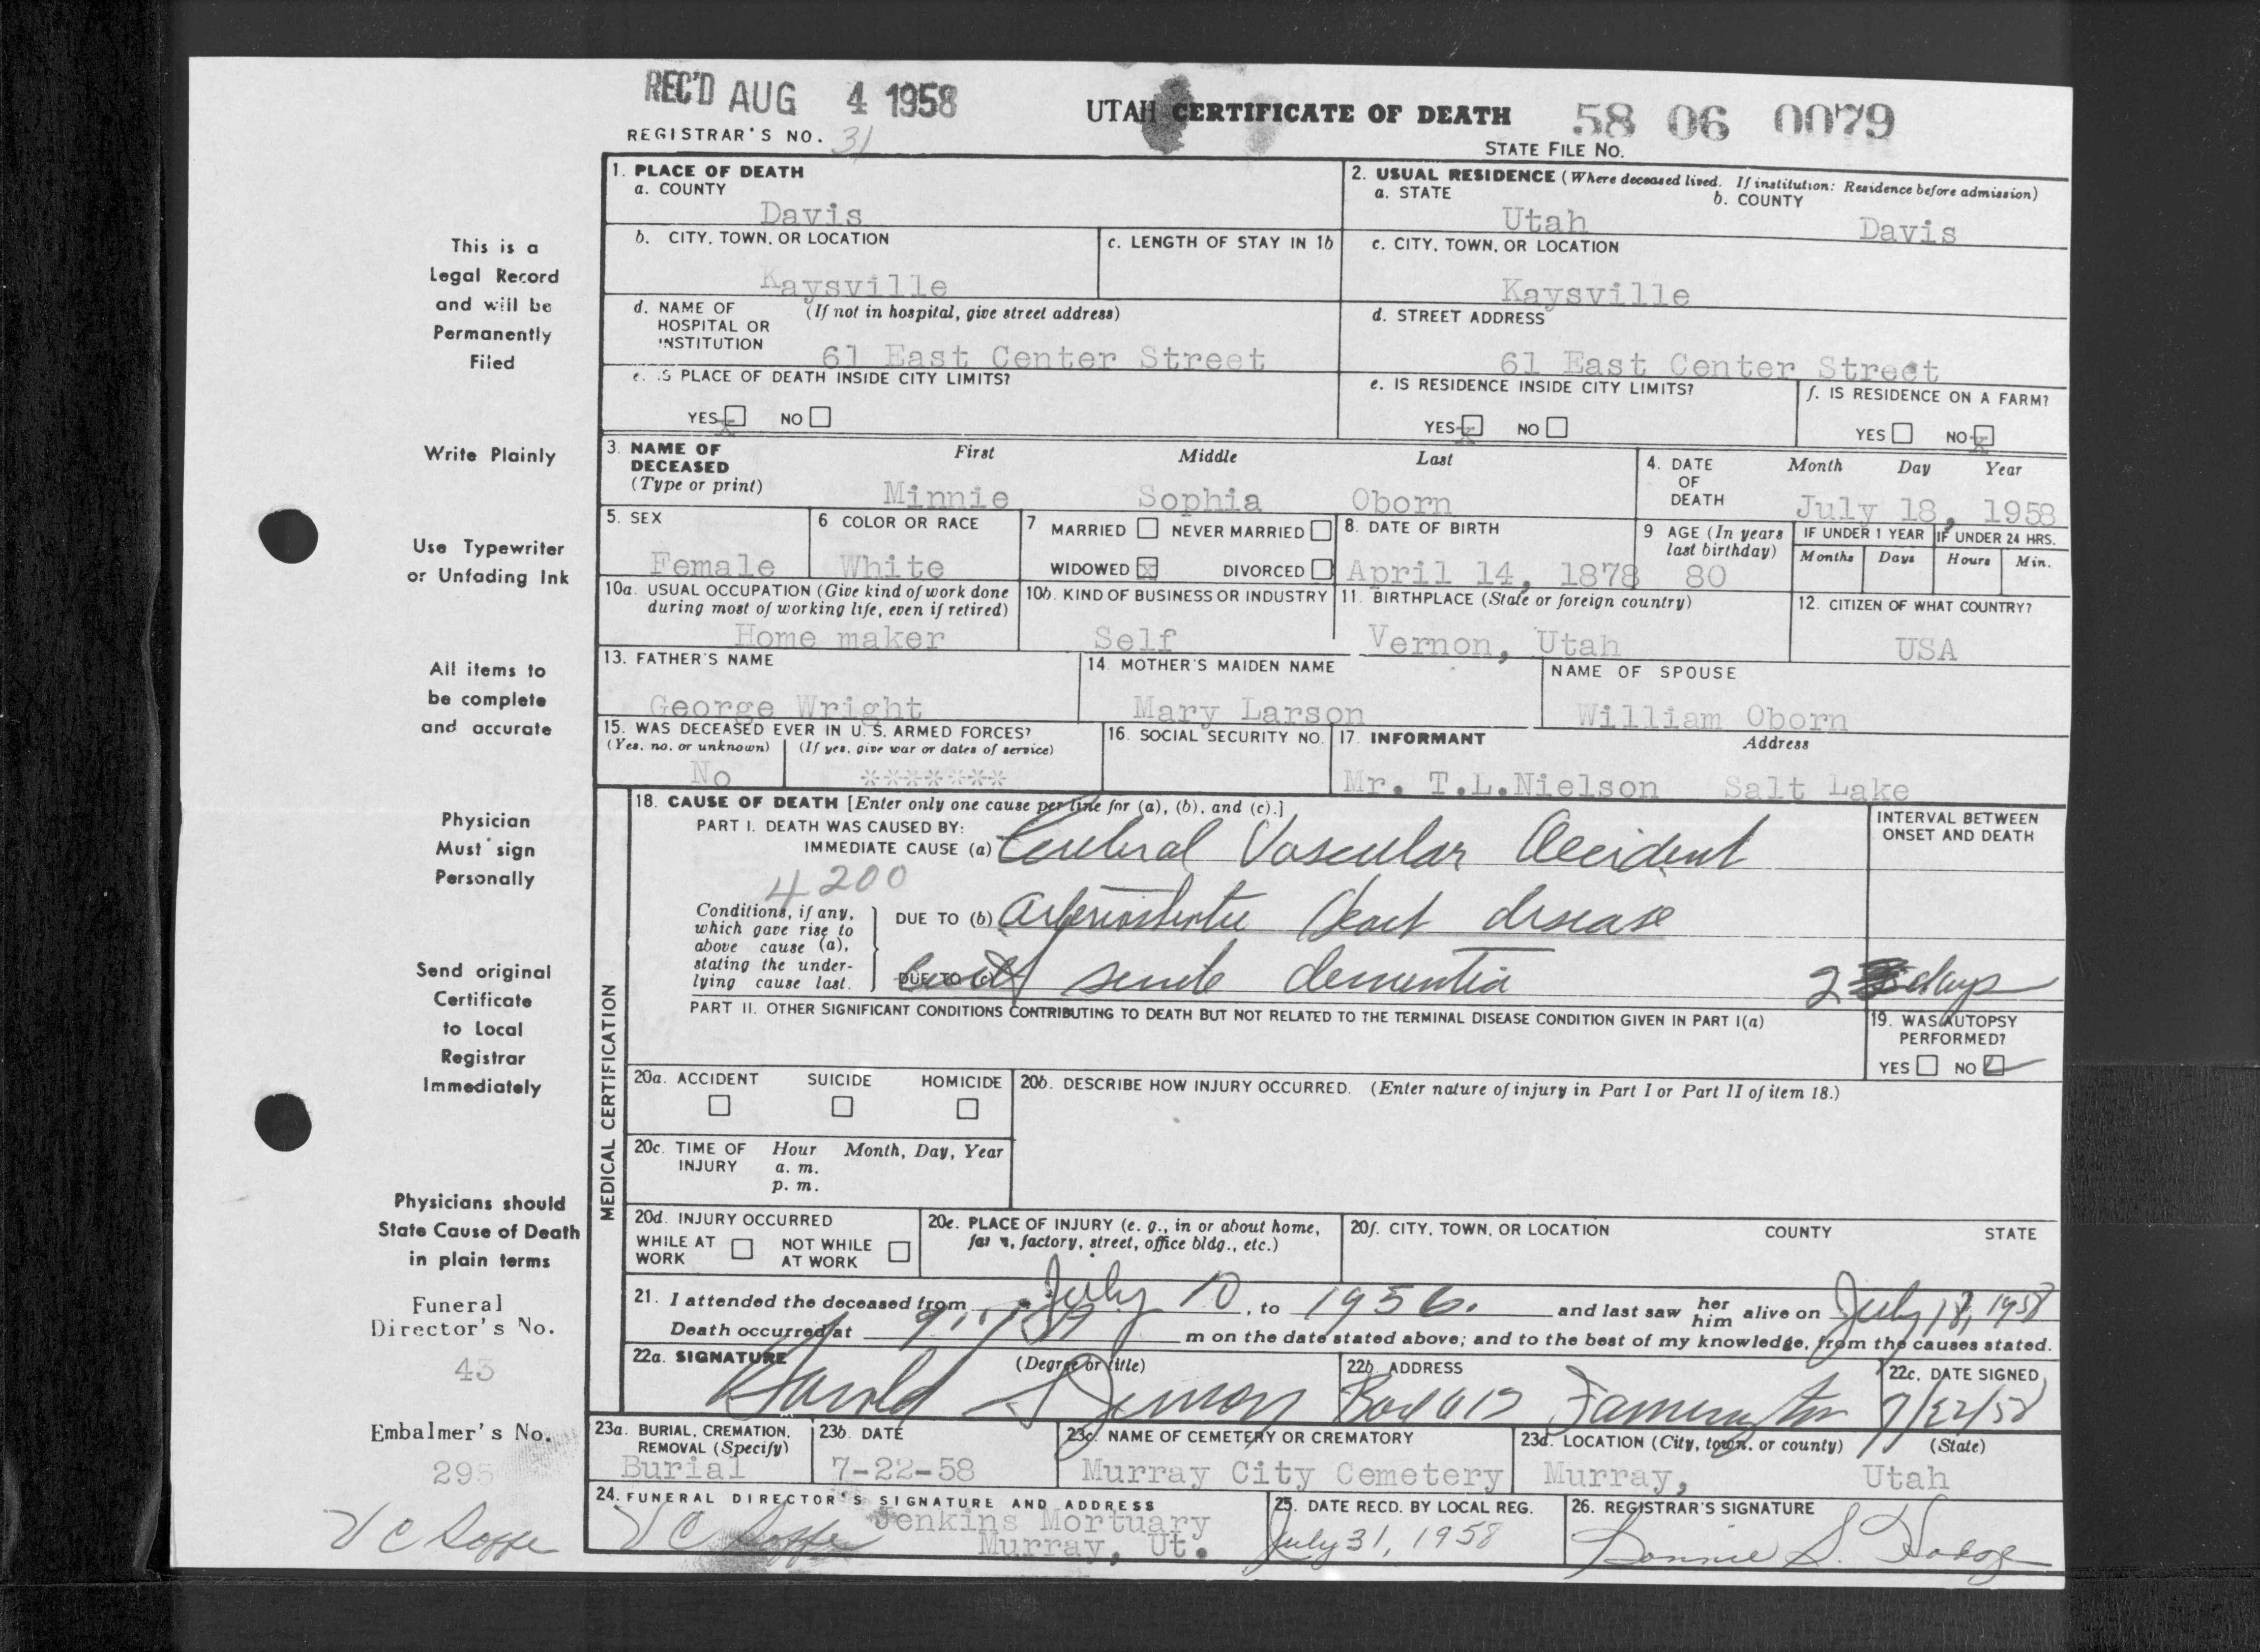 REC'D AUG 4 1958
UTAH CERTIFICATE OF DEATH 58 06 0079
REGISTRAR'S NO. 31
STATE FILE NO.
1. PLACE OF DEATH
a. COUNTY
Davis
2. USUAL RESIDENCE (Where deceased lived. If institution: Residence before admission)
a. STATE b. COUNTY
Utah Davis
b. CITY, TOWN, OR LOCATION
Kaysville
c. LENGTH OF STAY IN 1b
c. CITY, TOWN, OR LOCATION
Kaysville
d. NAME OF (If not in hospital, give street address)
HOSPITAL OR
INSTITUTION 61 East Center Street
d. STREET ADDRESS
61 East Center Street
e. IS PLACE OF DEATH INSIDE CITY LIMITS?
YES x NO
e. IS RESIDENCE INSIDE CITY LIMITS?
YES x NO
f. IS RESIDENCE ON A FARM?
YES NO x
3. NAME OF DECEASED (Type or print)
First Middle Last
Minnie Sophia Oborn
4. DATE OF DEATH
Month Day Year
July 18, 1958
5. SEX
Female
6 COLOR OR RACE
White
7 MARRIED NEVER MARRIED
WIDOWED x DIVORCED
8. DATE OF BIRTH
April 14, 1878
9 AGE (In years last birthday)
80
IF UNDER 1 YEAR
Months Days
IF UNDER 24 HRS.
Hours Min.
10a. USUAL OCCUPATION (Give kind of work done
during most of working life, even if retired)
Home maker
10b. KIND OF BUSINESS OR INDUSTRY
Self
11. BIRTHPLACE (State or foreign country)
Vernon, Utah
12. CITIZEN OF WHAT COUNTRY?
USA
13. FATHER'S NAME
George Wright
14. MOTHER'S MAIDEN NAME
Mary Larson
NAME OF SPOUSE
William Oborn
15. WAS DECEASED EVER IN U. S. ARMED FORCES?
(Yes, no, or unknown) (If yes, give war or dates of service)
No *******
16. SOCIAL SECURITY NO.
17. INFORMANT Address
Mr. T.L.Nielson Salt Lake
MEDICAL CERTIFICATION
18. CAUSE OF DEATH [Enter only one cause per line for (a), (b), and (c).]
PART I. DEATH WAS CAUSED BY:
IMMEDIATE CAUSE (a) Cerebral Vascular Accident
INTERVAL BETWEEN
ONSET AND DEATH
4200
Conditions, if any,
which gave rise to
above cause (a),
stating the under-
lying cause last.
DUE TO (b) heart disease
DUE TO (c) senile dementia
2 days
PART II. OTHER SIGNIFICANT CONDITIONS CONTRIBUTING TO DEATH BUT NOT RELATED TO THE TERMINAL DISEASE CONDITION GIVEN IN PART I(a)
19. WAS AUTOPSY
PERFORMED?
YES NO
20a. ACCIDENT SUICIDE HOMICIDE
20b. DESCRIBE HOW INJURY OCCURRED. (Enter nature of injury in Part I or Part II of item 18.)
20c. TIME OF INJURY
Hour Month, Day, Year
a. m.
p. m.
20d. INJURY OCCURRED
WHILE AT WORK NOT WHILE AT WORK
20e. PLACE OF INJURY (e. g., in or about home,
farm, factory, street, office bldg., etc.)
20f. CITY, TOWN, OR LOCATION COUNTY STATE
21. I attended the deceased from July 10, to 1956. and last saw her him alive on July 18, 1958
Death occurred at m on the date stated above; and to the best of my knowledge, from the causes stated.
22a. SIGNATURE (Degree or title)
Harold
22b. ADDRESS
Farmington
22c. DATE SIGNED
7/22/58
23a. BURIAL, CREMATION,
REMOVAL (Specify)
Burial
23b. DATE
7-22-58
23c. NAME OF CEMETERY OR CREMATORY
Murray City Cemetery
23d. LOCATION (City, town, or county) (State)
Murray, Utah
24. FUNERAL DIRECTOR'S SIGNATURE AND ADDRESS
Jenkins Mortuary
Murray, Ut.
25. DATE RECD. BY LOCAL REG.
July 31, 1958
26. REGISTRAR'S SIGNATURE
Bonnie S.
This is a
Legal Record
and will be
Permanently
Filed
Write Plainly
Use Typewriter
or Unfading Ink
All items to
be complete
and accurate
Physician
Must sign
Personally
Send original
Certificate
to Local
Registrar
Immediately
Physicians should
State Cause of Death
in plain terms
Funeral
Director's No.
43
Embalmer's No.
295